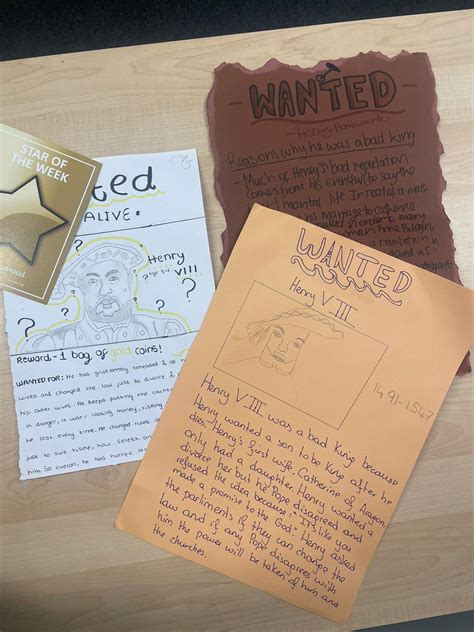 STAR OF
THE WEEK
ted
ALIVE*
Henry
VIII
Reward - 1 bag of gold coins!
WANTED FOR: He has gruesomely beheaded 2 of
wives and changed the law just to divorce 2
his other wives. He keeps putting the country
in danger, a war, loosing money, risking
he lost every time. He changed rules
just to suit himself, how selfish and
him so overall, he has horrible
WANTED
History Homework
Reasons why he was a bad king
- Much of Henry's bad reputation
comes from his eventful (to say the
marital life. In need of a male
his marriage to Catherine
in order to marry
woman Anne Boleyn
WANTED
Henry VIII
1491-1547
Henry VIII was a bad king because
Henry wanted a son to be king after he
dies. Henry's first wife Catherine of Aragon,
only had a daughter. Henry wanted a
divorce her but he Pope disagreed and
refused the idea because: "It's like you
made a promise to the God". Henry asked
the parliments if they can change the
law and if any Pope disagrees with
him the power will be taken of him and
the churches.